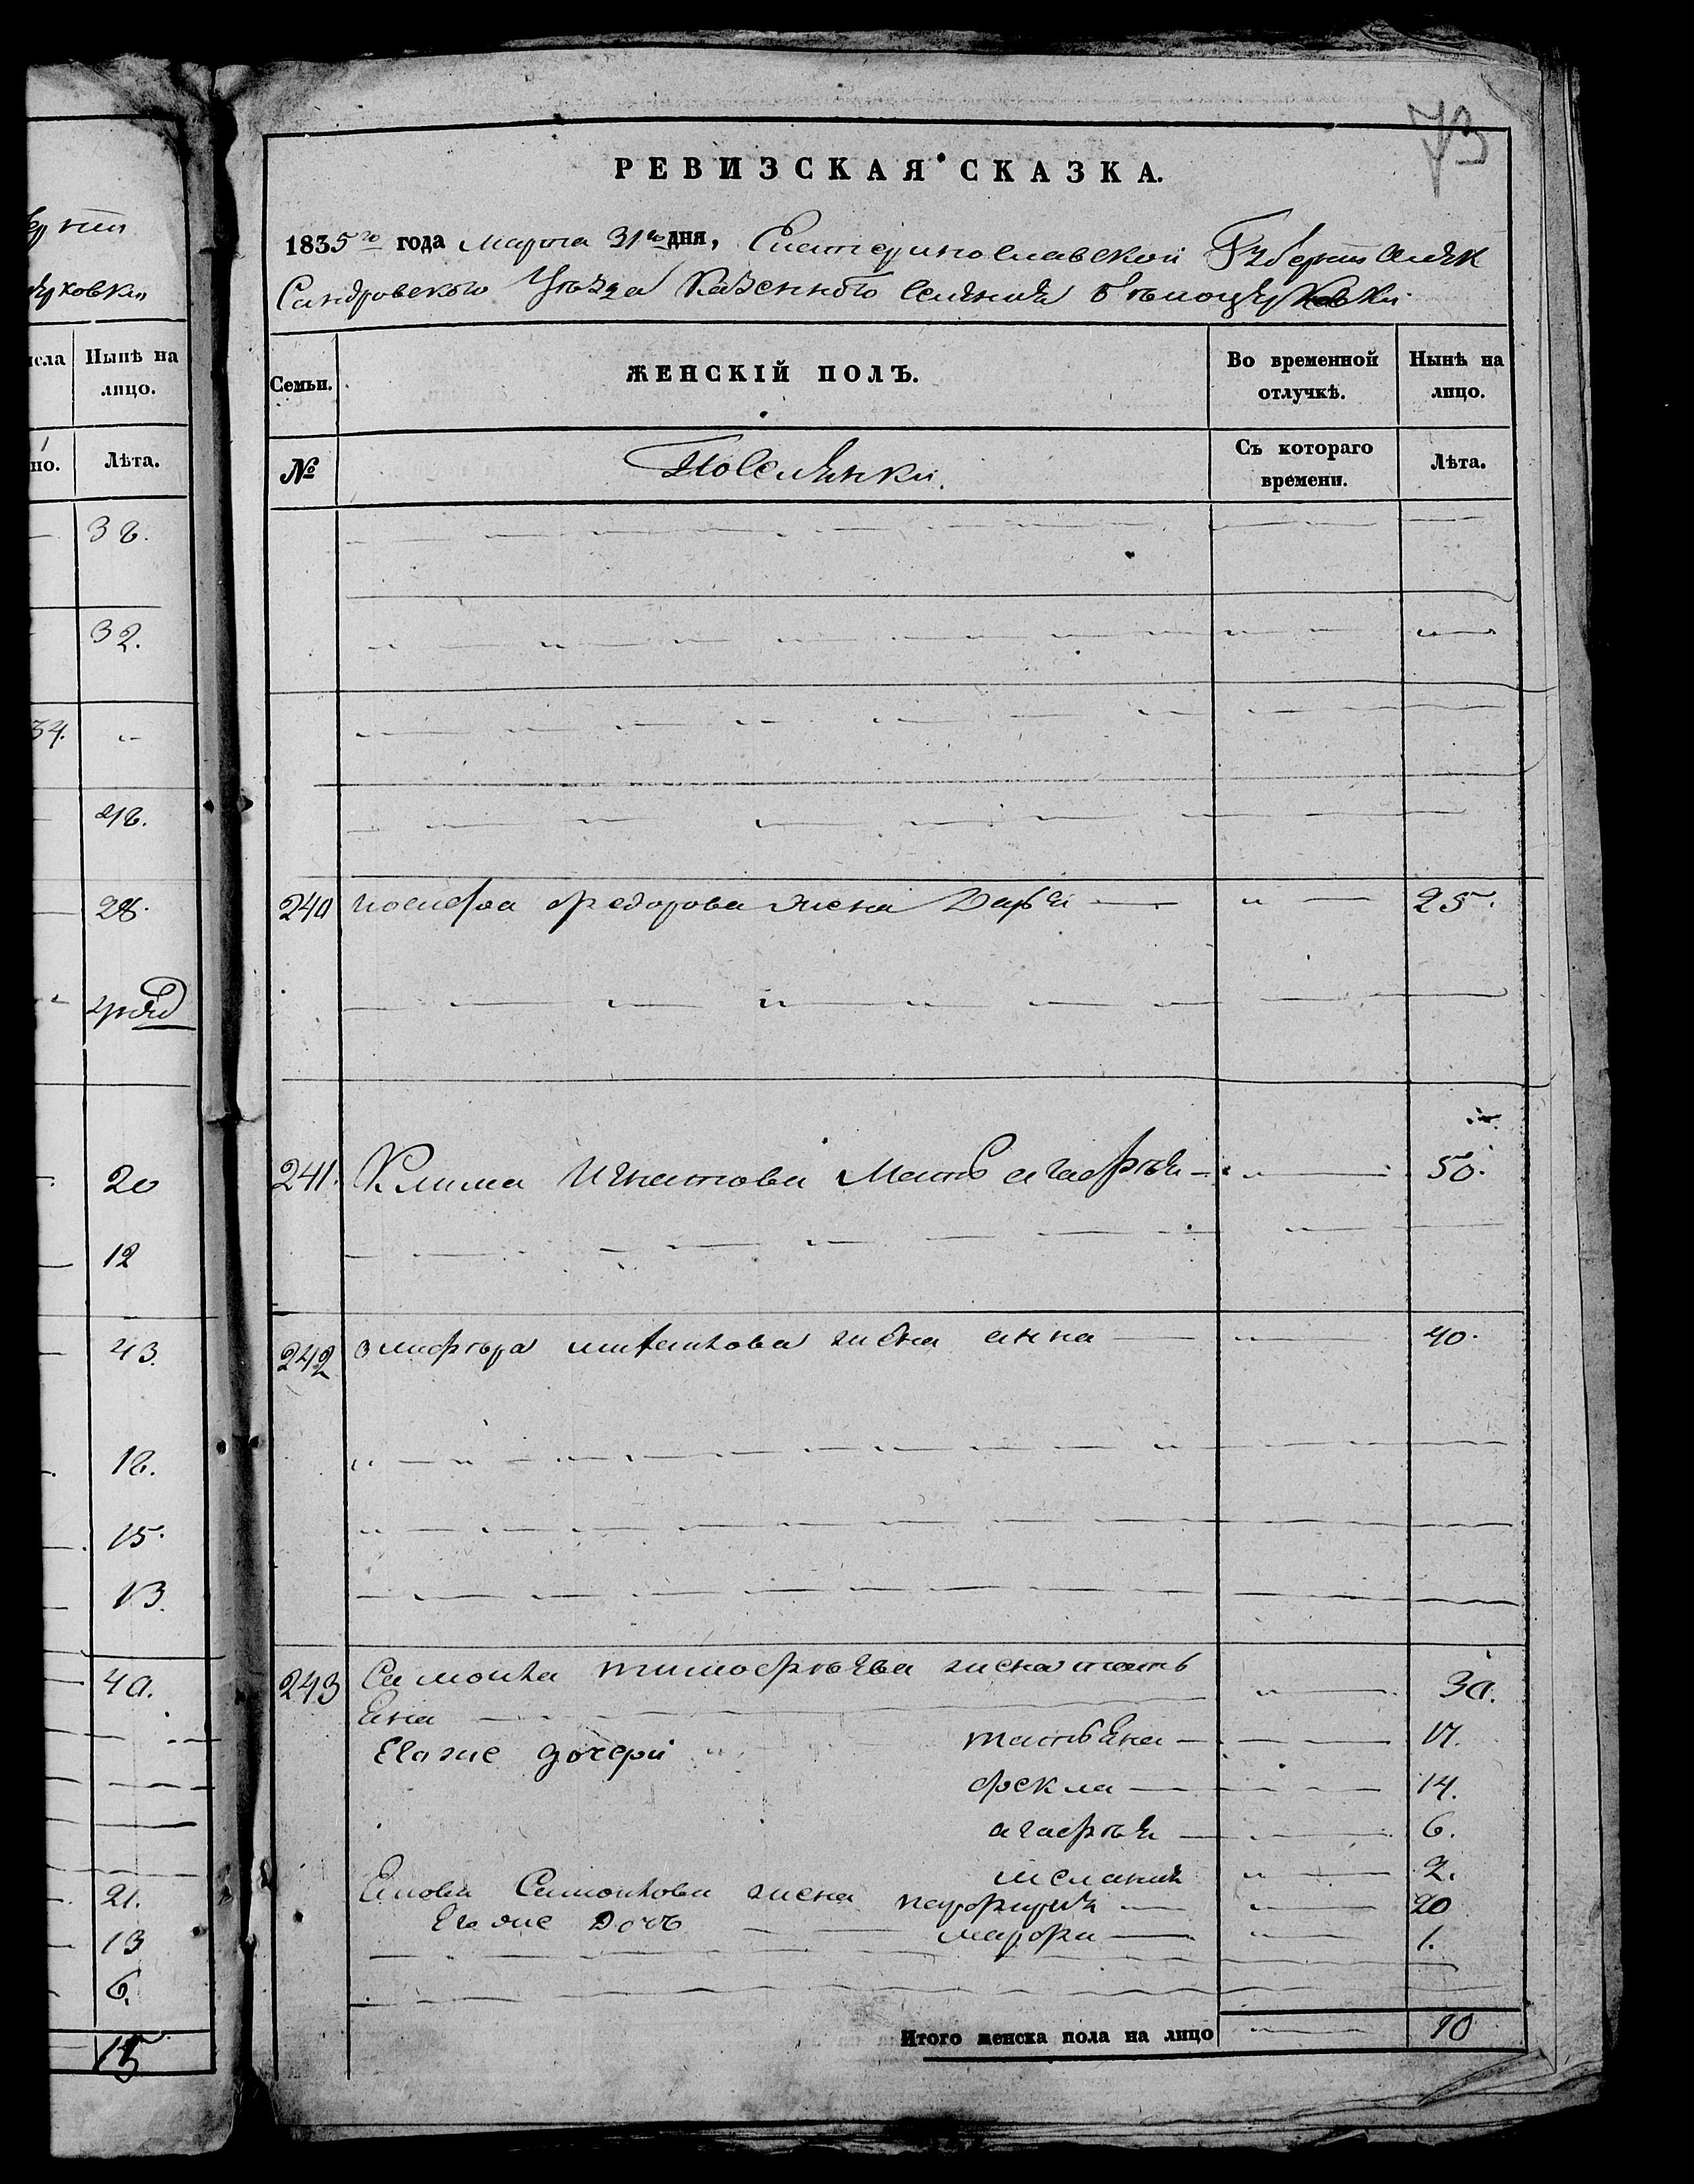 73
РЕВИЗСКАЯ СКАЗКА.
1835го года Марта 31го дня, Екатеринославской Губерніи Алек
Сандровского Уѣзда Казенного Селения Бѣлоцерковки
Семьи.
ЖЕНСКІЙ ПОЛЪ.
Во временной отлучкѣ.
Нынѣ на лицо.
№
Поселянки.
Съ котораго времени.
Лѣта.
240 иосифа федорова жена Дарья 25.
241. Клима Игнатова Мать агафья 50.
242 жена анна 40.
243 Самойла тимофѣева жена тать
Яна 30.
Его же дочери татьяна 17.
фекла 14.
агафья 6.
мелания 2.
Самойлова жена 20
Его же Дочь марфа 1.
Итого женска пола на лицо 10
ерковки
исла
Нынѣ на лицо.
но.
Лѣта.
38.
32.
34.
48.
28.
20
12
43.
18.
15.
13.
40.
21.
13
6.
15